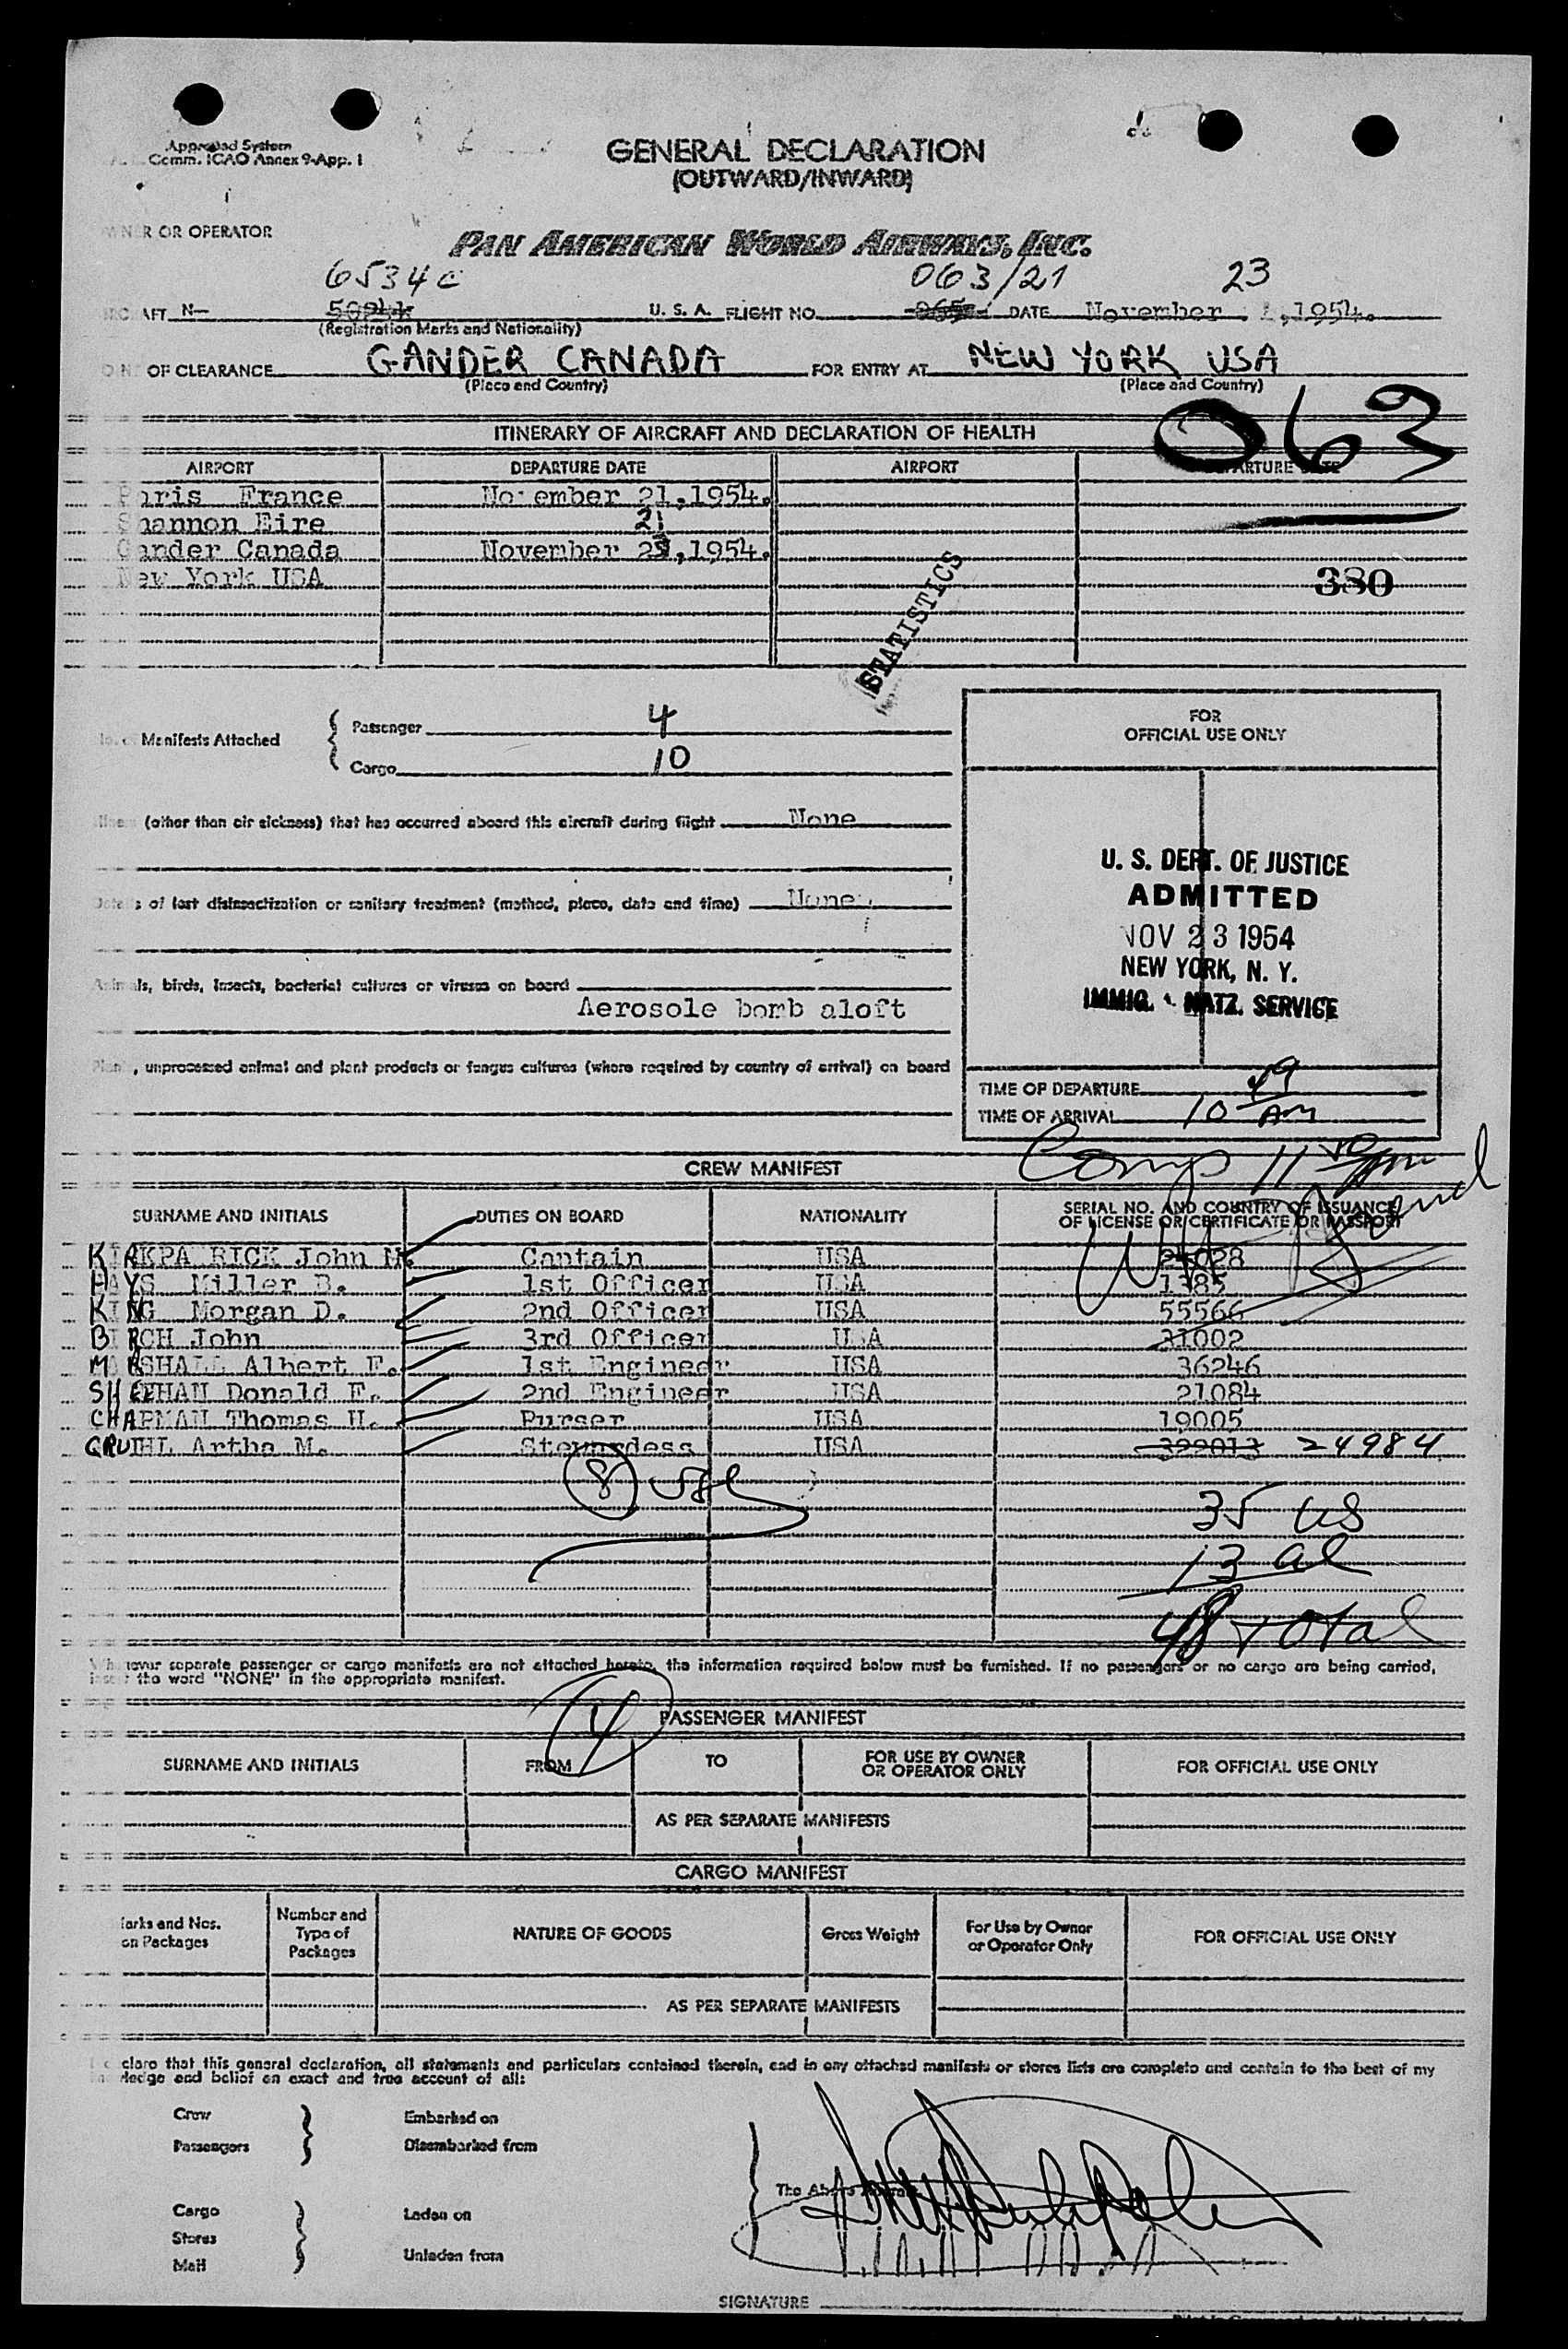 Approved System
Comm. ICAO Annex 9-App. 1
GENERAL DECLARATION
(OUTWARD/INWARD)
OWNER OR OPERATOR
PAN AMERICAN WORLD AIRWAYS, INC.
6534C 063/21 23
AIRCRAFT N— U. S. A. FLIGHT NO. DATE November ,1954.
(Registration Marks and Nationality)
OF CLEARANCE GANDER CANADA FOR ENTRY AT NEW YORK USA
(Place and Country) (Place and Country)
063
ITINERARY OF AIRCRAFT AND DECLARATION OF HEALTH
AIRPORT DEPARTURE DATE AIRPORT DEPARTURE DATE
Paris France November 21,1954.
Shannon Eire 21
Gander Canada November ,1954.
New York USA
380
STATISTICS
Manifests Attached
Passenger 4
Cargo 10
FOR
OFFICIAL USE ONLY
(other than air sickness) that has occurred aboard this aircraft during flight None
U. S. DEPT. OF JUSTICE
ADMITTED
NOV 23 1954
NEW YORK, N. Y.
IMMIG. & NATZ. SERVICE
Details of last disinsectization or sanitary treatment (method, place, date and time) None
Animals, birds, insects, bacterial cultures or viruses on board
Aerosole bomb aloft
Plants, unprocessed animal and plant products or fungus cultures (where required by country of arrival) on board
TIME OF DEPARTURE
TIME OF ARRIVAL 10 49 AM
Comp 11
CREW MANIFEST
SURNAME AND INITIALS DUTIES ON BOARD NATIONALITY SERIAL NO. AND COUNTRY OF ISSUANCE
OF LICENSE OR CERTIFICATE OR PASSPORT
KIRKPATRICK John M. Captain USA 24028
HAYS Miller B. 1st Officer USA 1385
KING Morgan D. 2nd Officer USA 55566
BIRCH John 3rd Officer USA 31002
MARSHALL Albert F. 1st Engineer USA 36246
SHEEHAN Donald F. 2nd Engineer USA 21084
CHAPMAN Thomas H. Purser USA 19005
GRUEHL Artha M. Stewardess USA 399013 24984
8
35 US
13 al
48 total
Whenever separate passenger or cargo manifests are not attached hereto, the information required below must be furnished. If no passengers or no cargo are being carried,
insert the word "NONE" in the appropriate manifest.
4
PASSENGER MANIFEST
SURNAME AND INITIALS FROM TO FOR USE BY OWNER
OR OPERATOR ONLY FOR OFFICIAL USE ONLY
AS PER SEPARATE MANIFESTS
CARGO MANIFEST
Marks and Nos.
on Packages Number and
Type of
Packages NATURE OF GOODS Gross Weight For Use by Owner
or Operator Only FOR OFFICIAL USE ONLY
AS PER SEPARATE MANIFESTS
I declare that this general declaration, all statements and particulars contained therein, and in any attached manifests or stores lists are complete and contain to the best of my
knowledge and belief an exact and true account of all:
Crew Embarked on
Passengers Disembarked from
The Above Aircraft
Cargo Laden on
Stores
Mail Unladen from
SIGNATURE